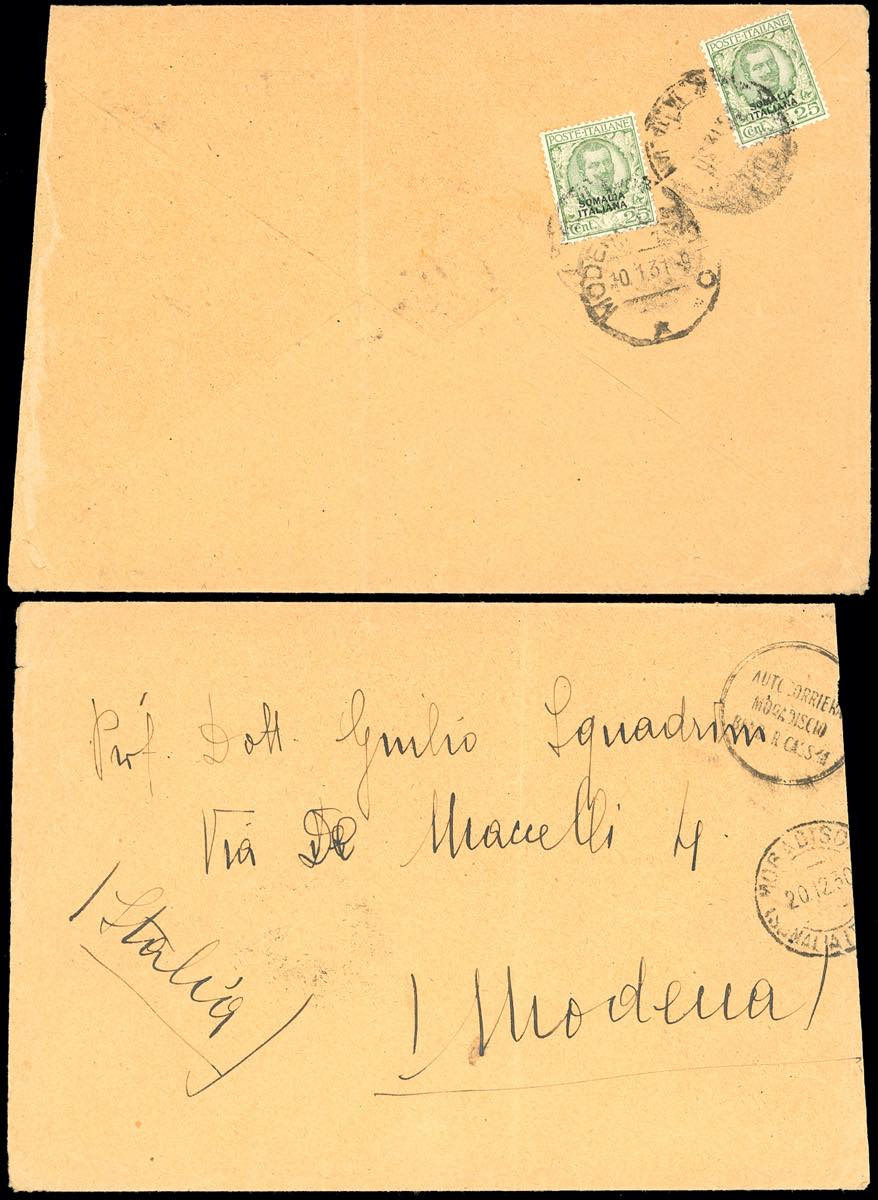 POSTE·ITALIANE
SOMALIA
ITALIANA
Cent. 25
POSTE·ITALIANE
SOMALIA
ITALIANA
Cent. 25
10.1.31
Prof. Dott. Giulio Squadrini
Via De Macelli 4.
(Italia)
(Modena)
AUTOCORRIERA
MOGADISCIO
MOGADISC
20.12.30
SOMALIA IT